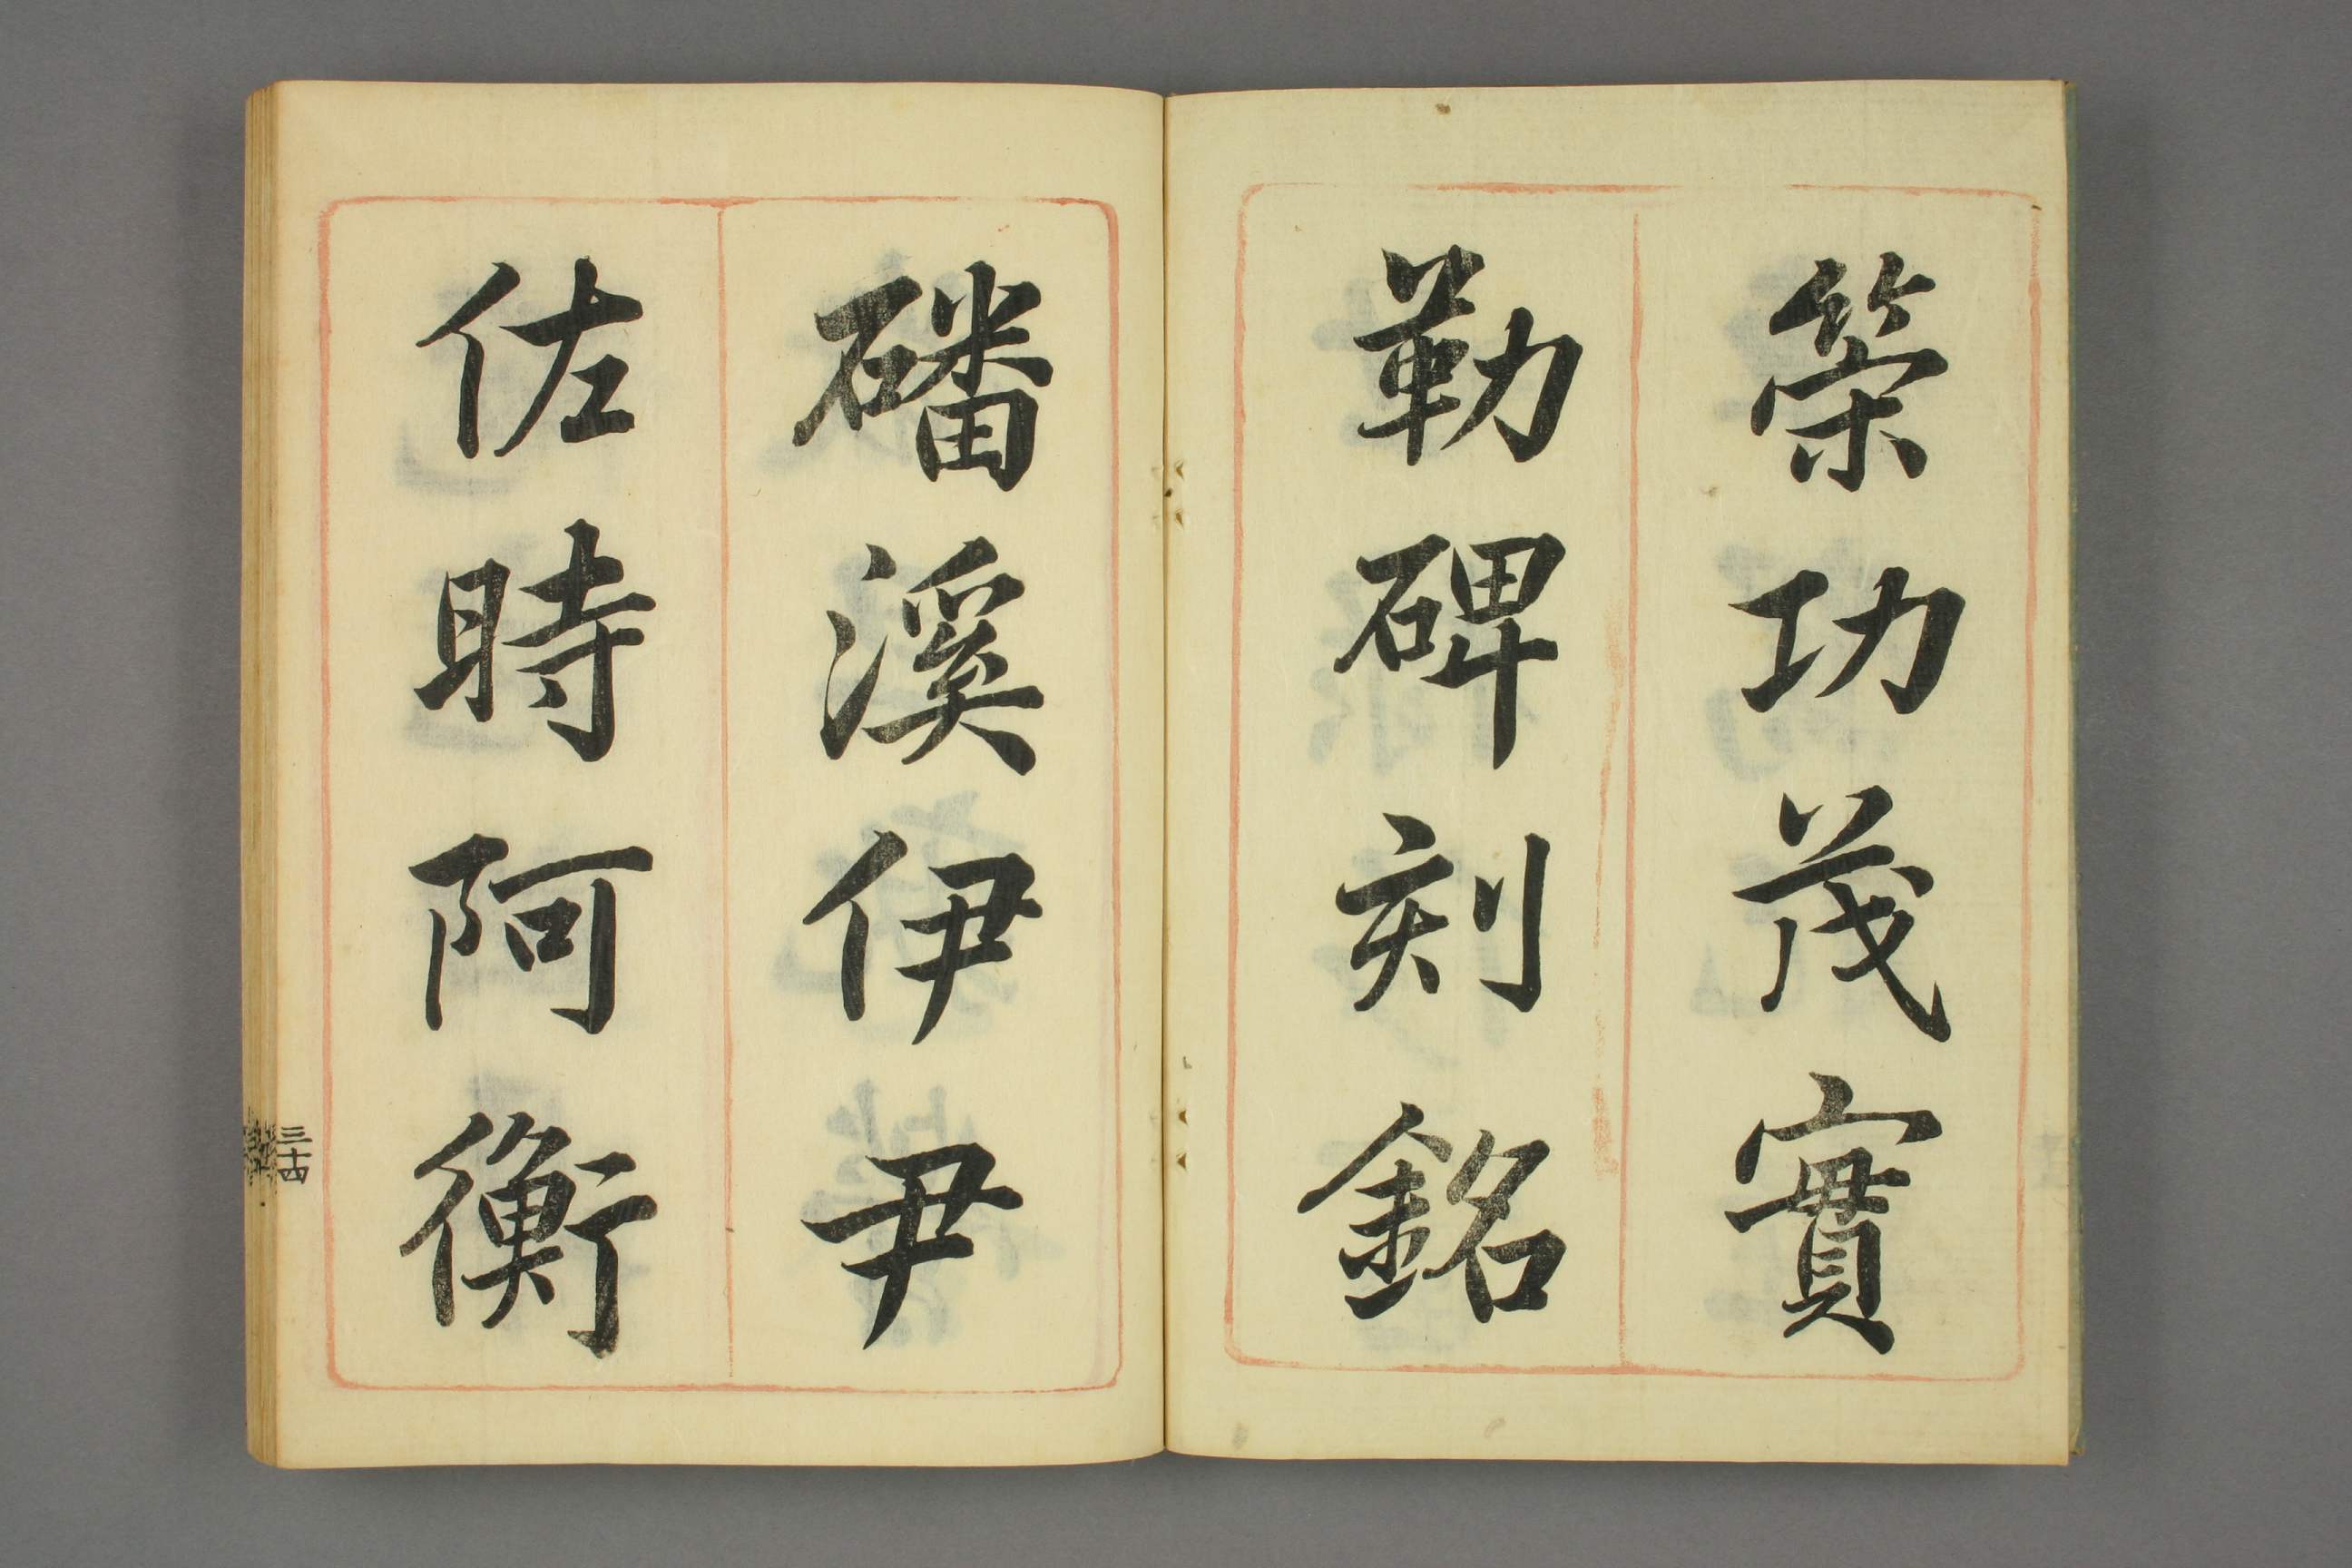 策功茂實
勒碑刻銘
磻溪伊尹
佐時阿衡
三十四